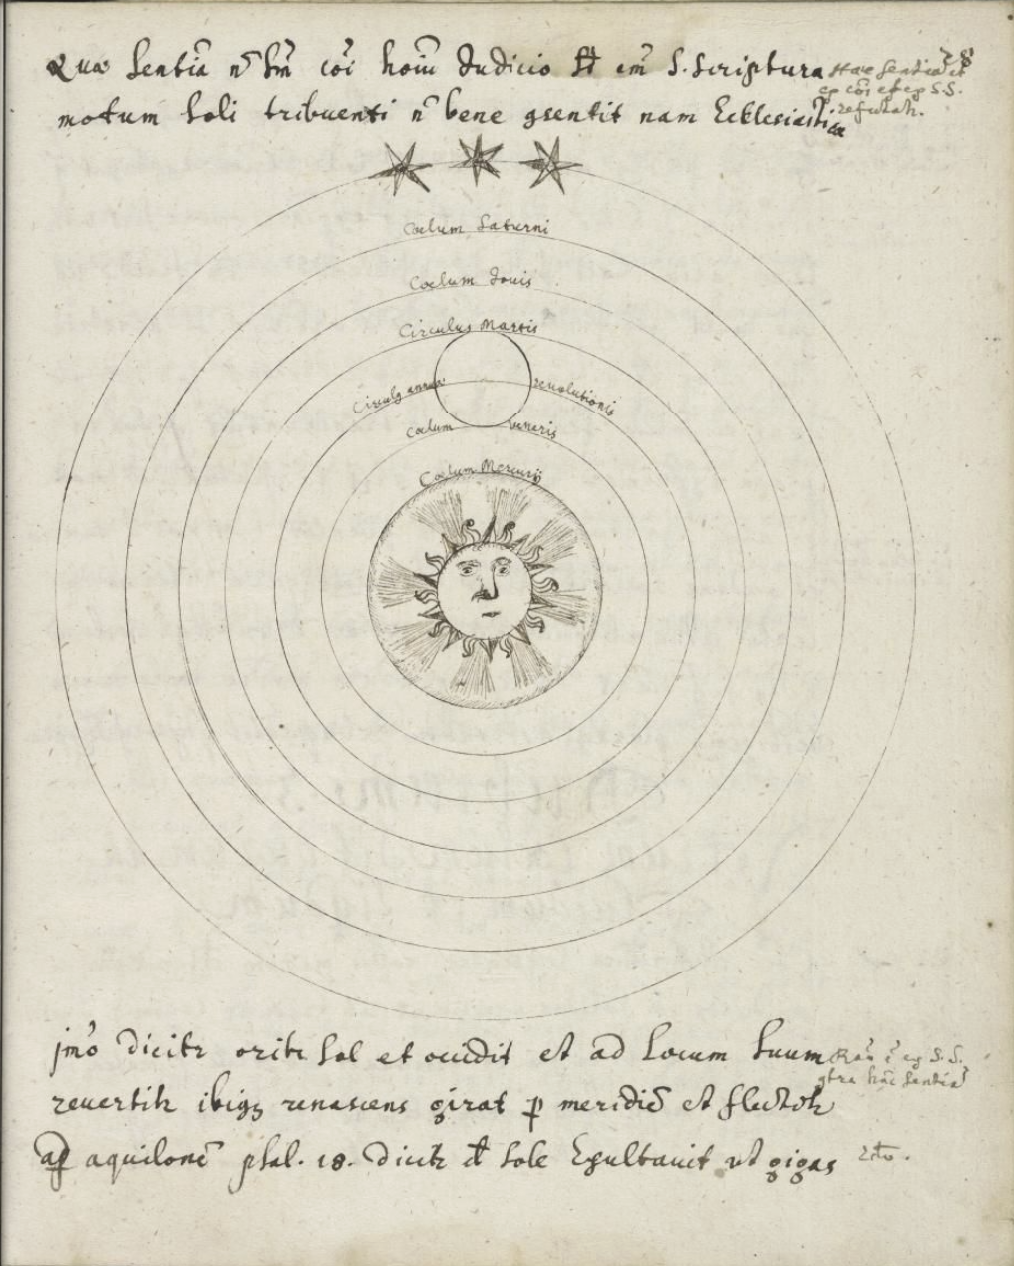 Quae sentia n̄ sm̄ coi hoiū Judicio st em̄ S. Scriptura
motum soli tribuenti n̄ bene gsentit nam Ecclesiasticae
Haec sentia
ex S.S.
refutatr.
Coelum Saturni
Coelum Jovis
Circulus Martis
Circulg annuae revolutionis
Coelum Veneris
Coelum Mercurij
jmō dicitr oritr sol et occidit et ad locum suum
revertitr ibiqz renascens girat p meridiē et flectitr
ad aquilonē psal. 18. dicitr d sole Exultavit ut gigas
Rāo ex S.S.
gtra hāc sentiā
2do.